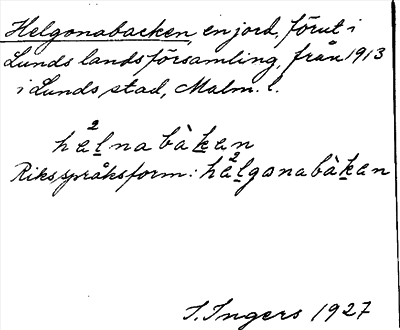 Helgonabacken, en jord, förut i
Lunds landsförsamling, från 1913
i Lunds stad, Malm. l.
hä²lna bàkan
Riksspråksform: hä²lgona bàkan
I. Ingers 1927